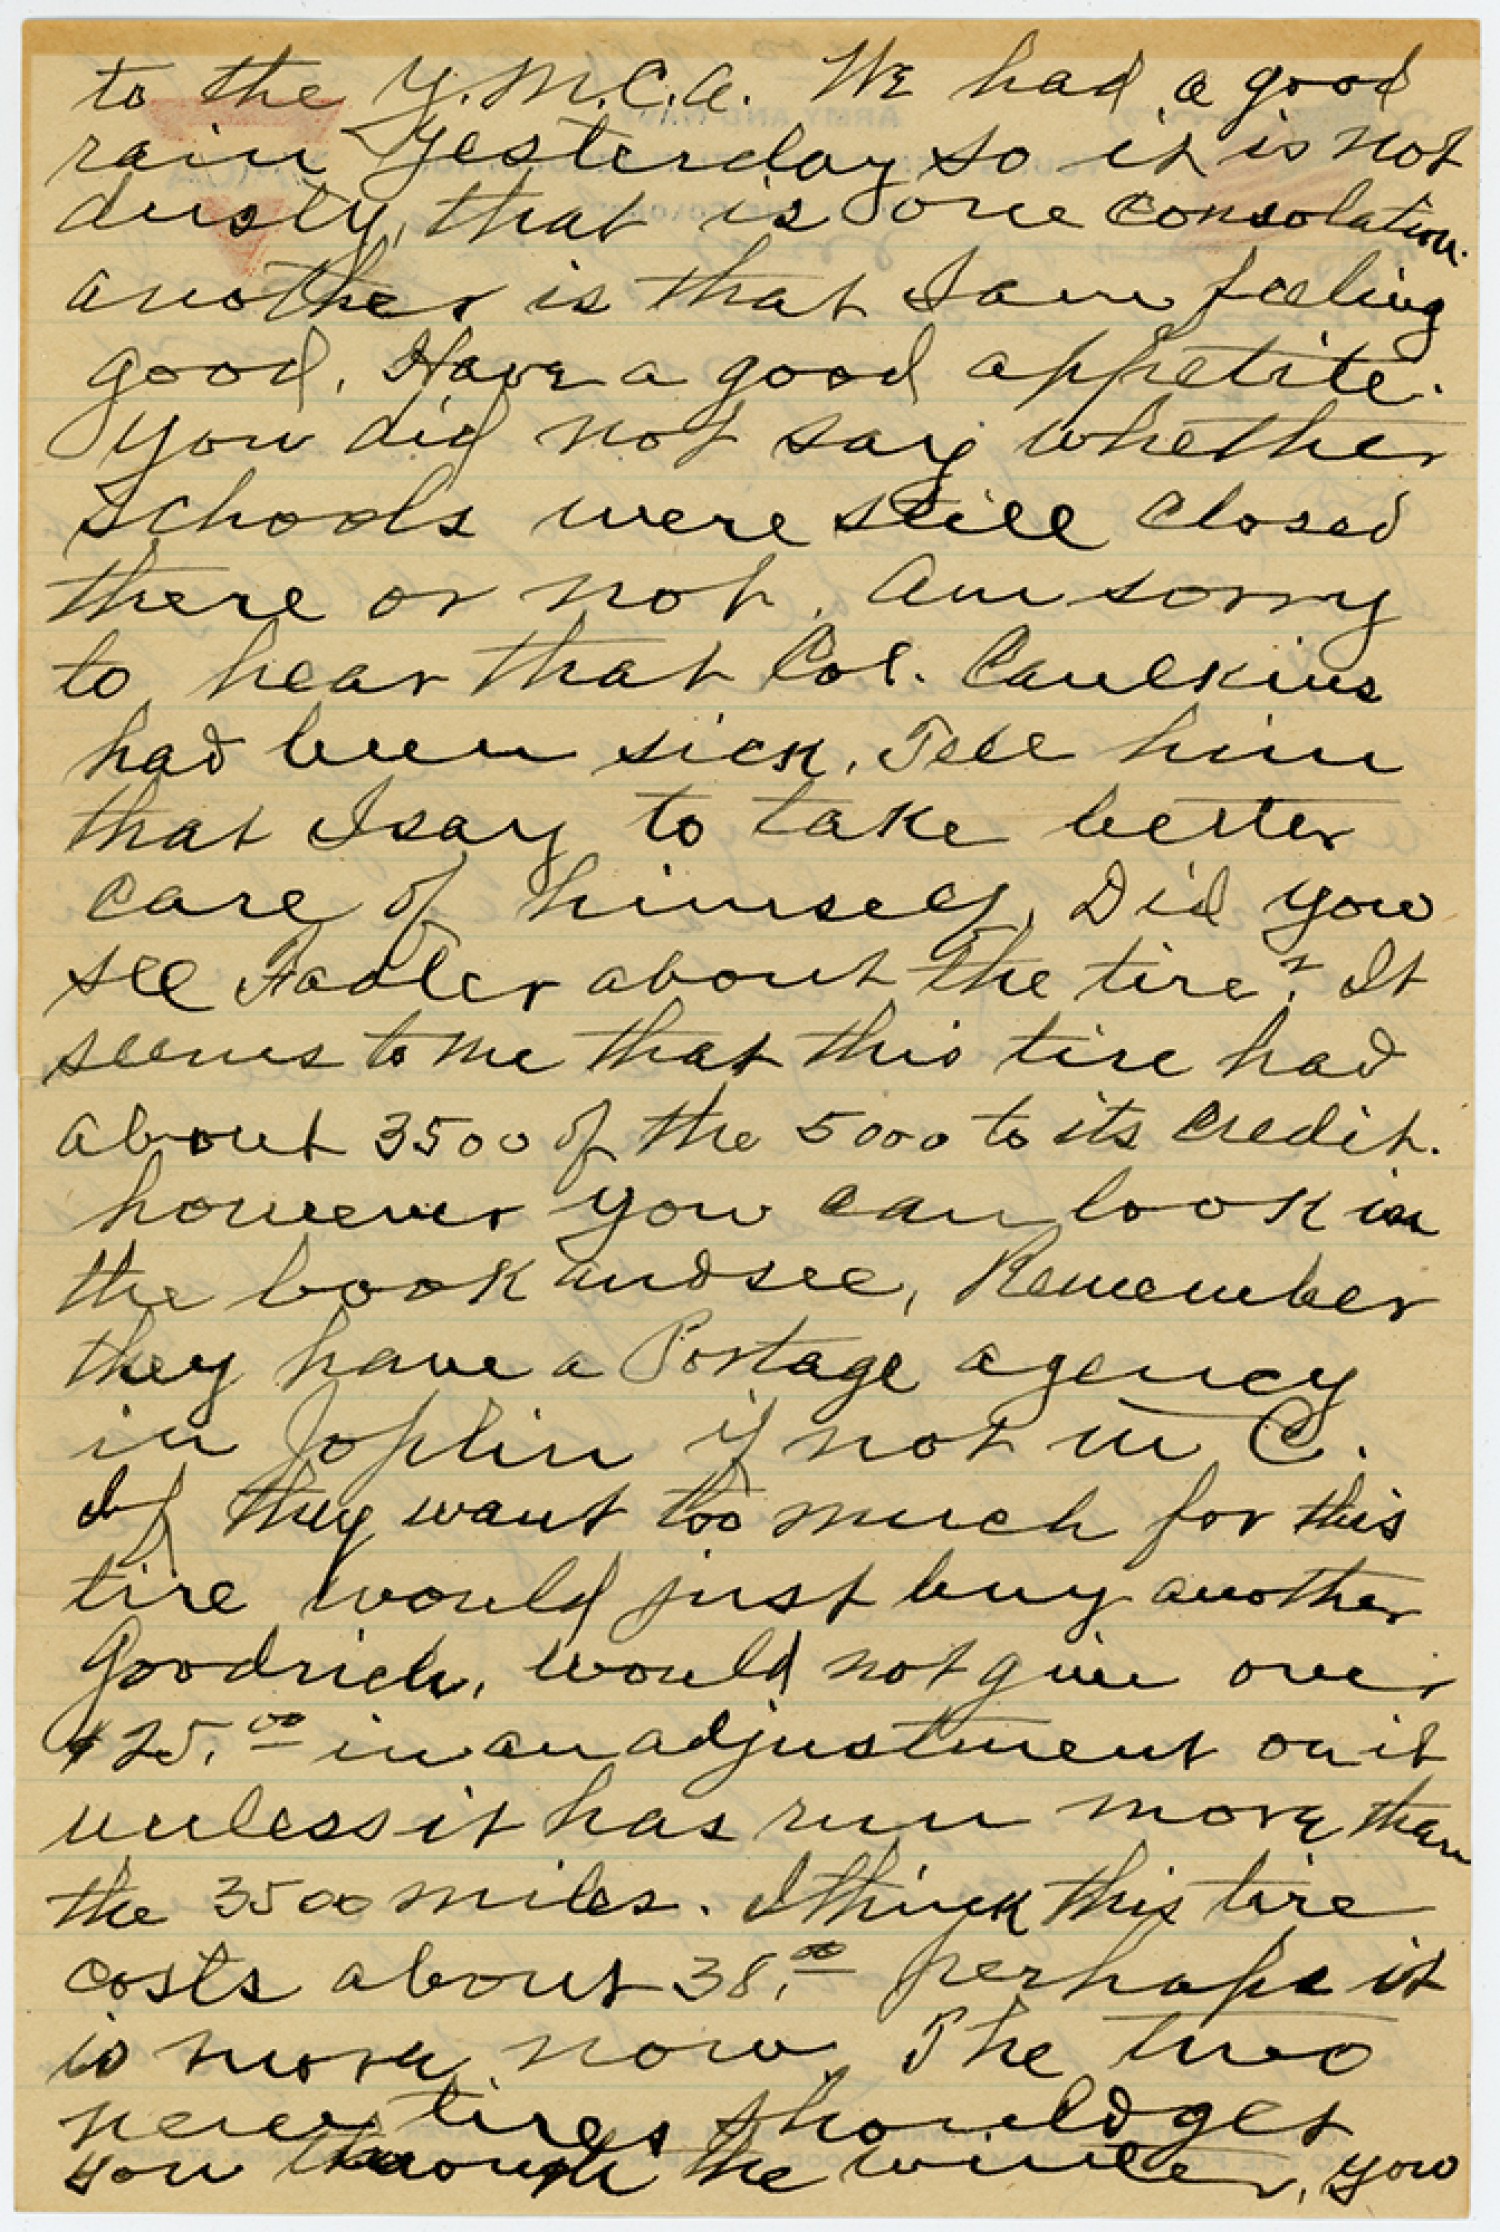 to the Y.M.C.A. We had a good
rain yesterday so it is not
dusty, that is one consolation.
another is that I am feeling
good. Have a good appetite.
You did not say whether
schools were still closed
there or not. Am sorry
to hear that Col. Caulkins
had been sick. Tell him
that I say to take better
care of himself. Did you
see Fadler about the tire? It
seems to me that this tire had
about 3500 of the 5000 to its credit.
however you can look in
the book and see, Remember
they have a Portage agency
in Joplin if not in C.
If they want too much for this
tire would just buy another
Goodrich, would not give over
$25.00 in an adjustment on it
unless it has run more than
the 3500 miles. I think this tire
costs about 38.00 perhaps it
is more now. The two
new tires should get
you through the winter, you